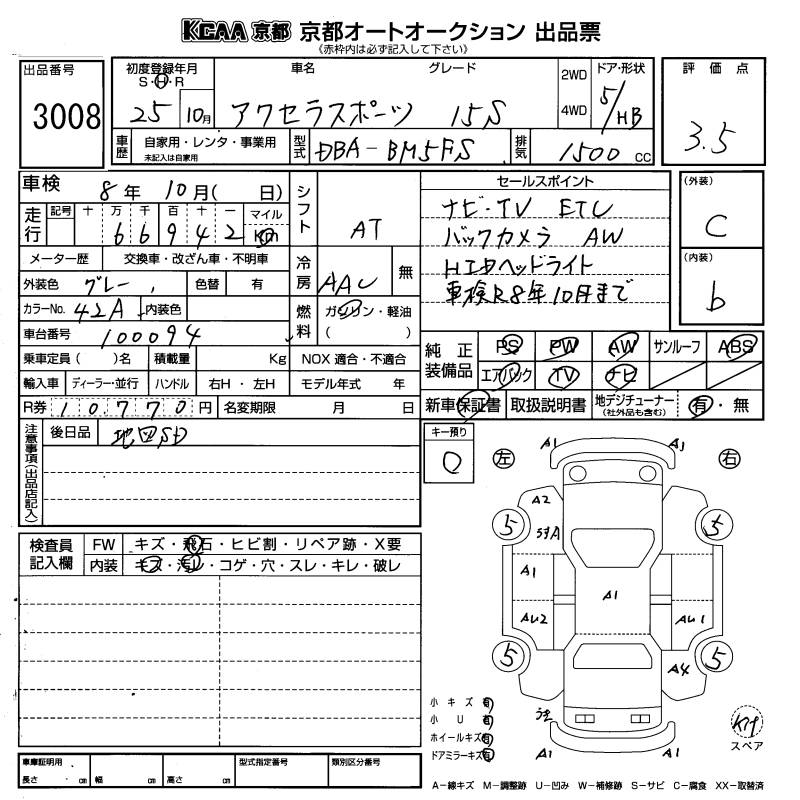 KCAA 京都 京都オートオークション 出品票
(赤枠内は必ず記入して下さい)
出品番号
3008
初度登録年月
S・H・R
25 10月
車名 グレード
アクセラスポーツ 15S
2WD
4WD
ドア・形状
5/HB
評価点
3.5
車歴
自家用・レンタ・事業用
未記入は自家用
型式
DBA-BM5FS
排気
1500 cc
車検 8年 10月( 日)
走行
記号 十 万 千 百 十 一 マイル
6 6 9 4 2 Km
メーター歴 交換車・改ざん車・不明車
外装色 グレー 色替 有
カラーNo. 42A 内装色
車台番号 100094
乗車定員( )名 積載量 Kg NOX 適合・不適合
輸入車 ディーラー・並行 ハンドル 右H・左H モデル年式 年
R券 10770円 名変期限 月 日
シフト AT
冷房 AAC 無
燃料 ガソリン・軽油
( )
セールスポイント
ナビ・TV ETC
バックカメラ AW
HIDヘッドライト
車検R8年10月まで
(外装)
C
(内装)
b
純正装備品
PS PW AW サンルーフ ABS
エアバック TV ナビ
新車保証書 取扱説明書 地デジチューナー(社外品も含む) 有・無
注意事項(出品店記入)
後日品 地図SD
キー預り
0
検査員記入欄
FW キズ・飛石・ヒビ割・リペア跡・X要
内装 キズ・汚レ・コゲ・穴・スレ・キレ・破レ
左 右
A1 A1
A2
5 5
A
A1
A1
AU2 AU1
5 5
A4
A1 A1
小キズ 有
小U 有
ホイールキズ 有
ドアミラーキズ 有
スペア
車庫証明用
長さ . cm 幅 cm 高さ cm
型式指定番号 類別区分番号
A-線キズ M-調整跡 U-凹み W-補修跡 S-サビ C-腐食 XX-取替済